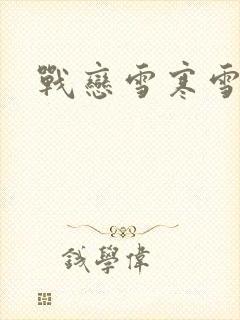 戰戀雪寒雪
鉞學偉